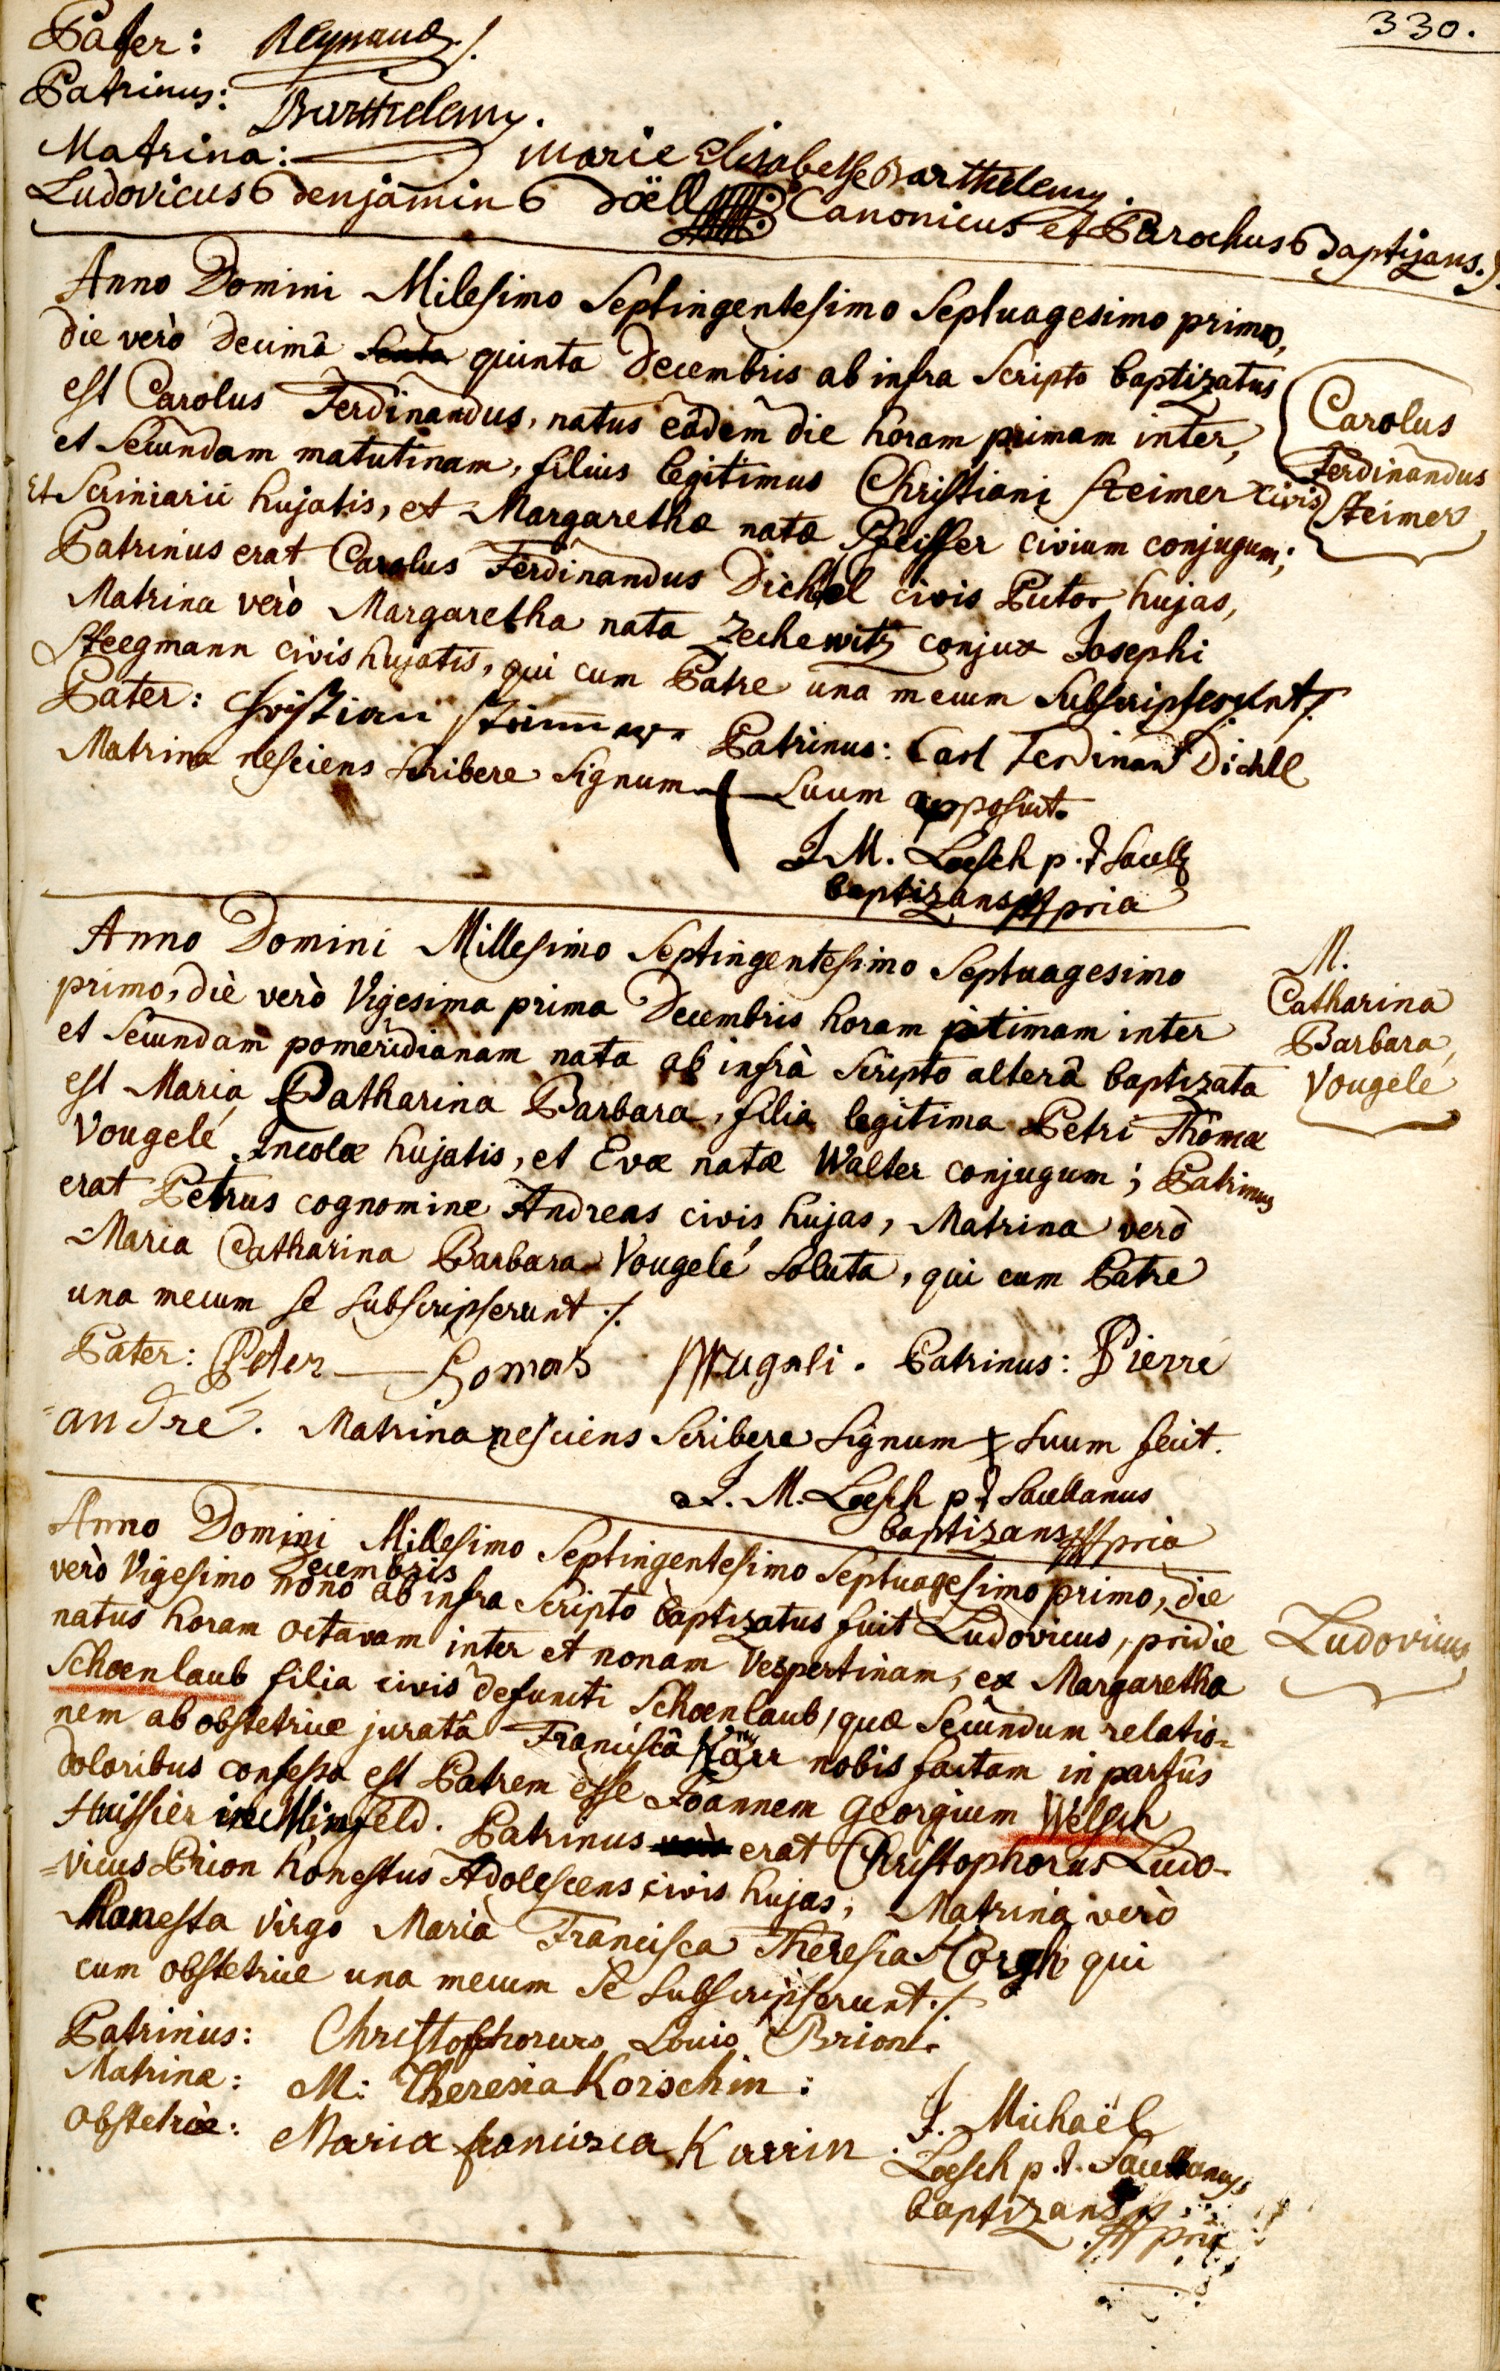 330.
Pater: Reynaud ./.
Patrinus: Barthelemy.
Matrina: Marie Elisabethe Barthelemy.
Ludovicus Benjamin Doëll Canonicus et Parochus Baptizans ./.
Anno Domini Milesimo Septingentesimo Septuagesimo primo,
die verò decimâ quinta Decembris ab infra Scripto baptizatus
est Carolus Ferdinandus, natus eâdem die horam primam inter,
et Secundam matutinam, filius legitimus Christiani Steimer civis
et Scriniarii hujatis, et Margarethæ natæ Pfeiffer civium conjugum;
Patrinus erat Carolus Ferdinandus Dichtel civis Putor hujas,
Matrina verò Margaretha nata Zechewitz conjux Josephi
Steegmann civis hujatis, qui cum Patre una mecum Subscripserunt ./.
Carolus
Ferdinandus
Steimer
Pater: Christian Patrinus: Carl Ferdinand Dichtl
Matrina nesciens Scribere Signum Suum apposuit.
J. M. Loesch p. t. Sacell
baptizans mpria
Anno Domini Millesimo Septingentesimo Septuagesimo
primo, diè verò Vigesima prima Decembris horam primam inter
et Secundam pomeridianam nata ab infrà Scripto alterâ baptizata
est Maria Catharina Barbara, filia legitima Petri Thomæ
Vougelé Incolæ hujatis, et Evæ natæ Walter conjugum; Patrinus
erat Petrus cognomine Andreas civis hujas, Matrina verò
Maria Catharina Barbara Vougelé Soluta, qui cum Patre
una mecum se Subscripserunt ./.
M.
Catharina
Barbara
Vougelé
Pater: Peter Domas Wugali. Patrinus: Pierre
=andré. Matrina nesciens Scribere Signum + Suum fecit.
J. M. Loesch p. t. Sacellanus
baptizans mpria
Anno Domini Millesimo Septingentesimo Septuagesimo primo, die
verò Vigesimo nono Decembris ab infra Scripto baptizatus fuit Ludovicus, pridie
natus horam octavam inter et nonam Vespertinam, ex Margaretha
Schoenlaub filia civis defuncti Schoenlaub, quæ Secundum relatio=
nem ab obstetrice juratâ Franciscâ Karr nobis factam in partûs
doloribus confessa est Patrem esse Joannem Georgium Welsch
Huissier in Minfeld. Patrinus erat Christophorus Ludo-
=vicus Brion honestus Adolescens civis hujas, Matrina verò
Honesta virgo Maria Francisca Theresia Corgh qui
cum obstetrice una mecum Se Subscripserunt ./.
Ludovicus
Patrinus: Christophorus Louis Brion.
Matrina: M: Theresia Korschin:
Obstetrix: Maria francisca Karrin.
J. Michaël
Loesch p. t. Sacellanus
baptizans
mpria